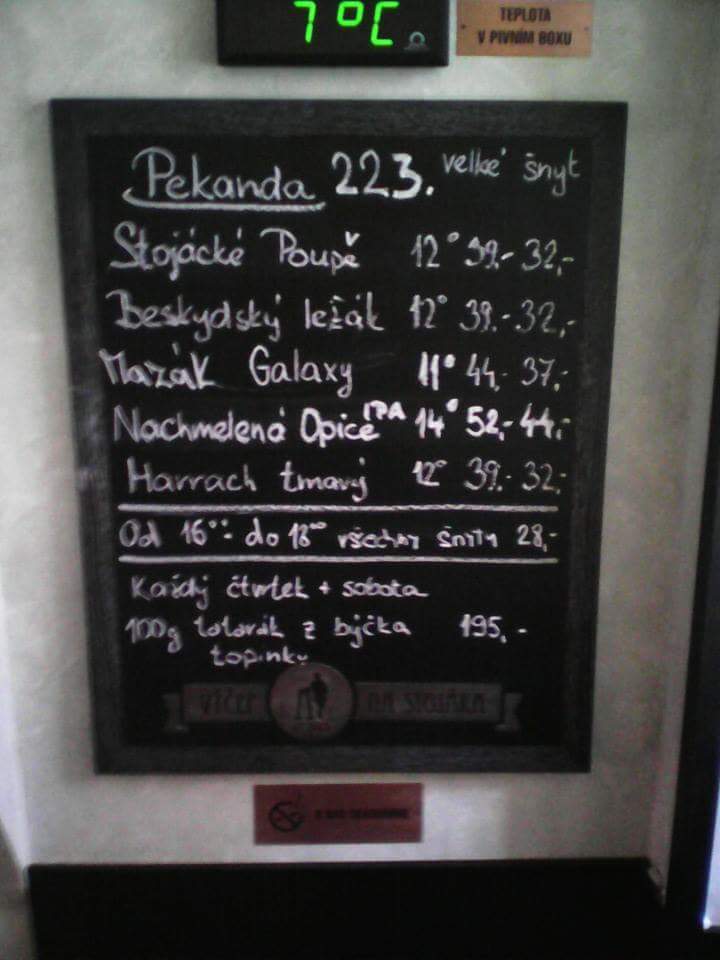 7°C
TEPLOTA
V PIVNÍM BOXU
Pekanda 22.3. velké šnyt
Stojácké Poupě 12° 39.- 32,-
Beskydský ležák 12° 39.- 32,-
Mazák Galaxy 11° 44,- 37,-
Nachmelená Opice IPA 14° 52,- 44,-
Harrach tmavý 12° 39.- 32,-
Od 16°° do 18°° všechny šnity 28,-
Každý čtvrtek + sobota
100g tatarák z býčka 195,-
topinky
VÝČEP NA STOJÁKA